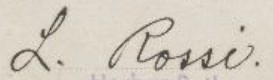 L. Rossi.